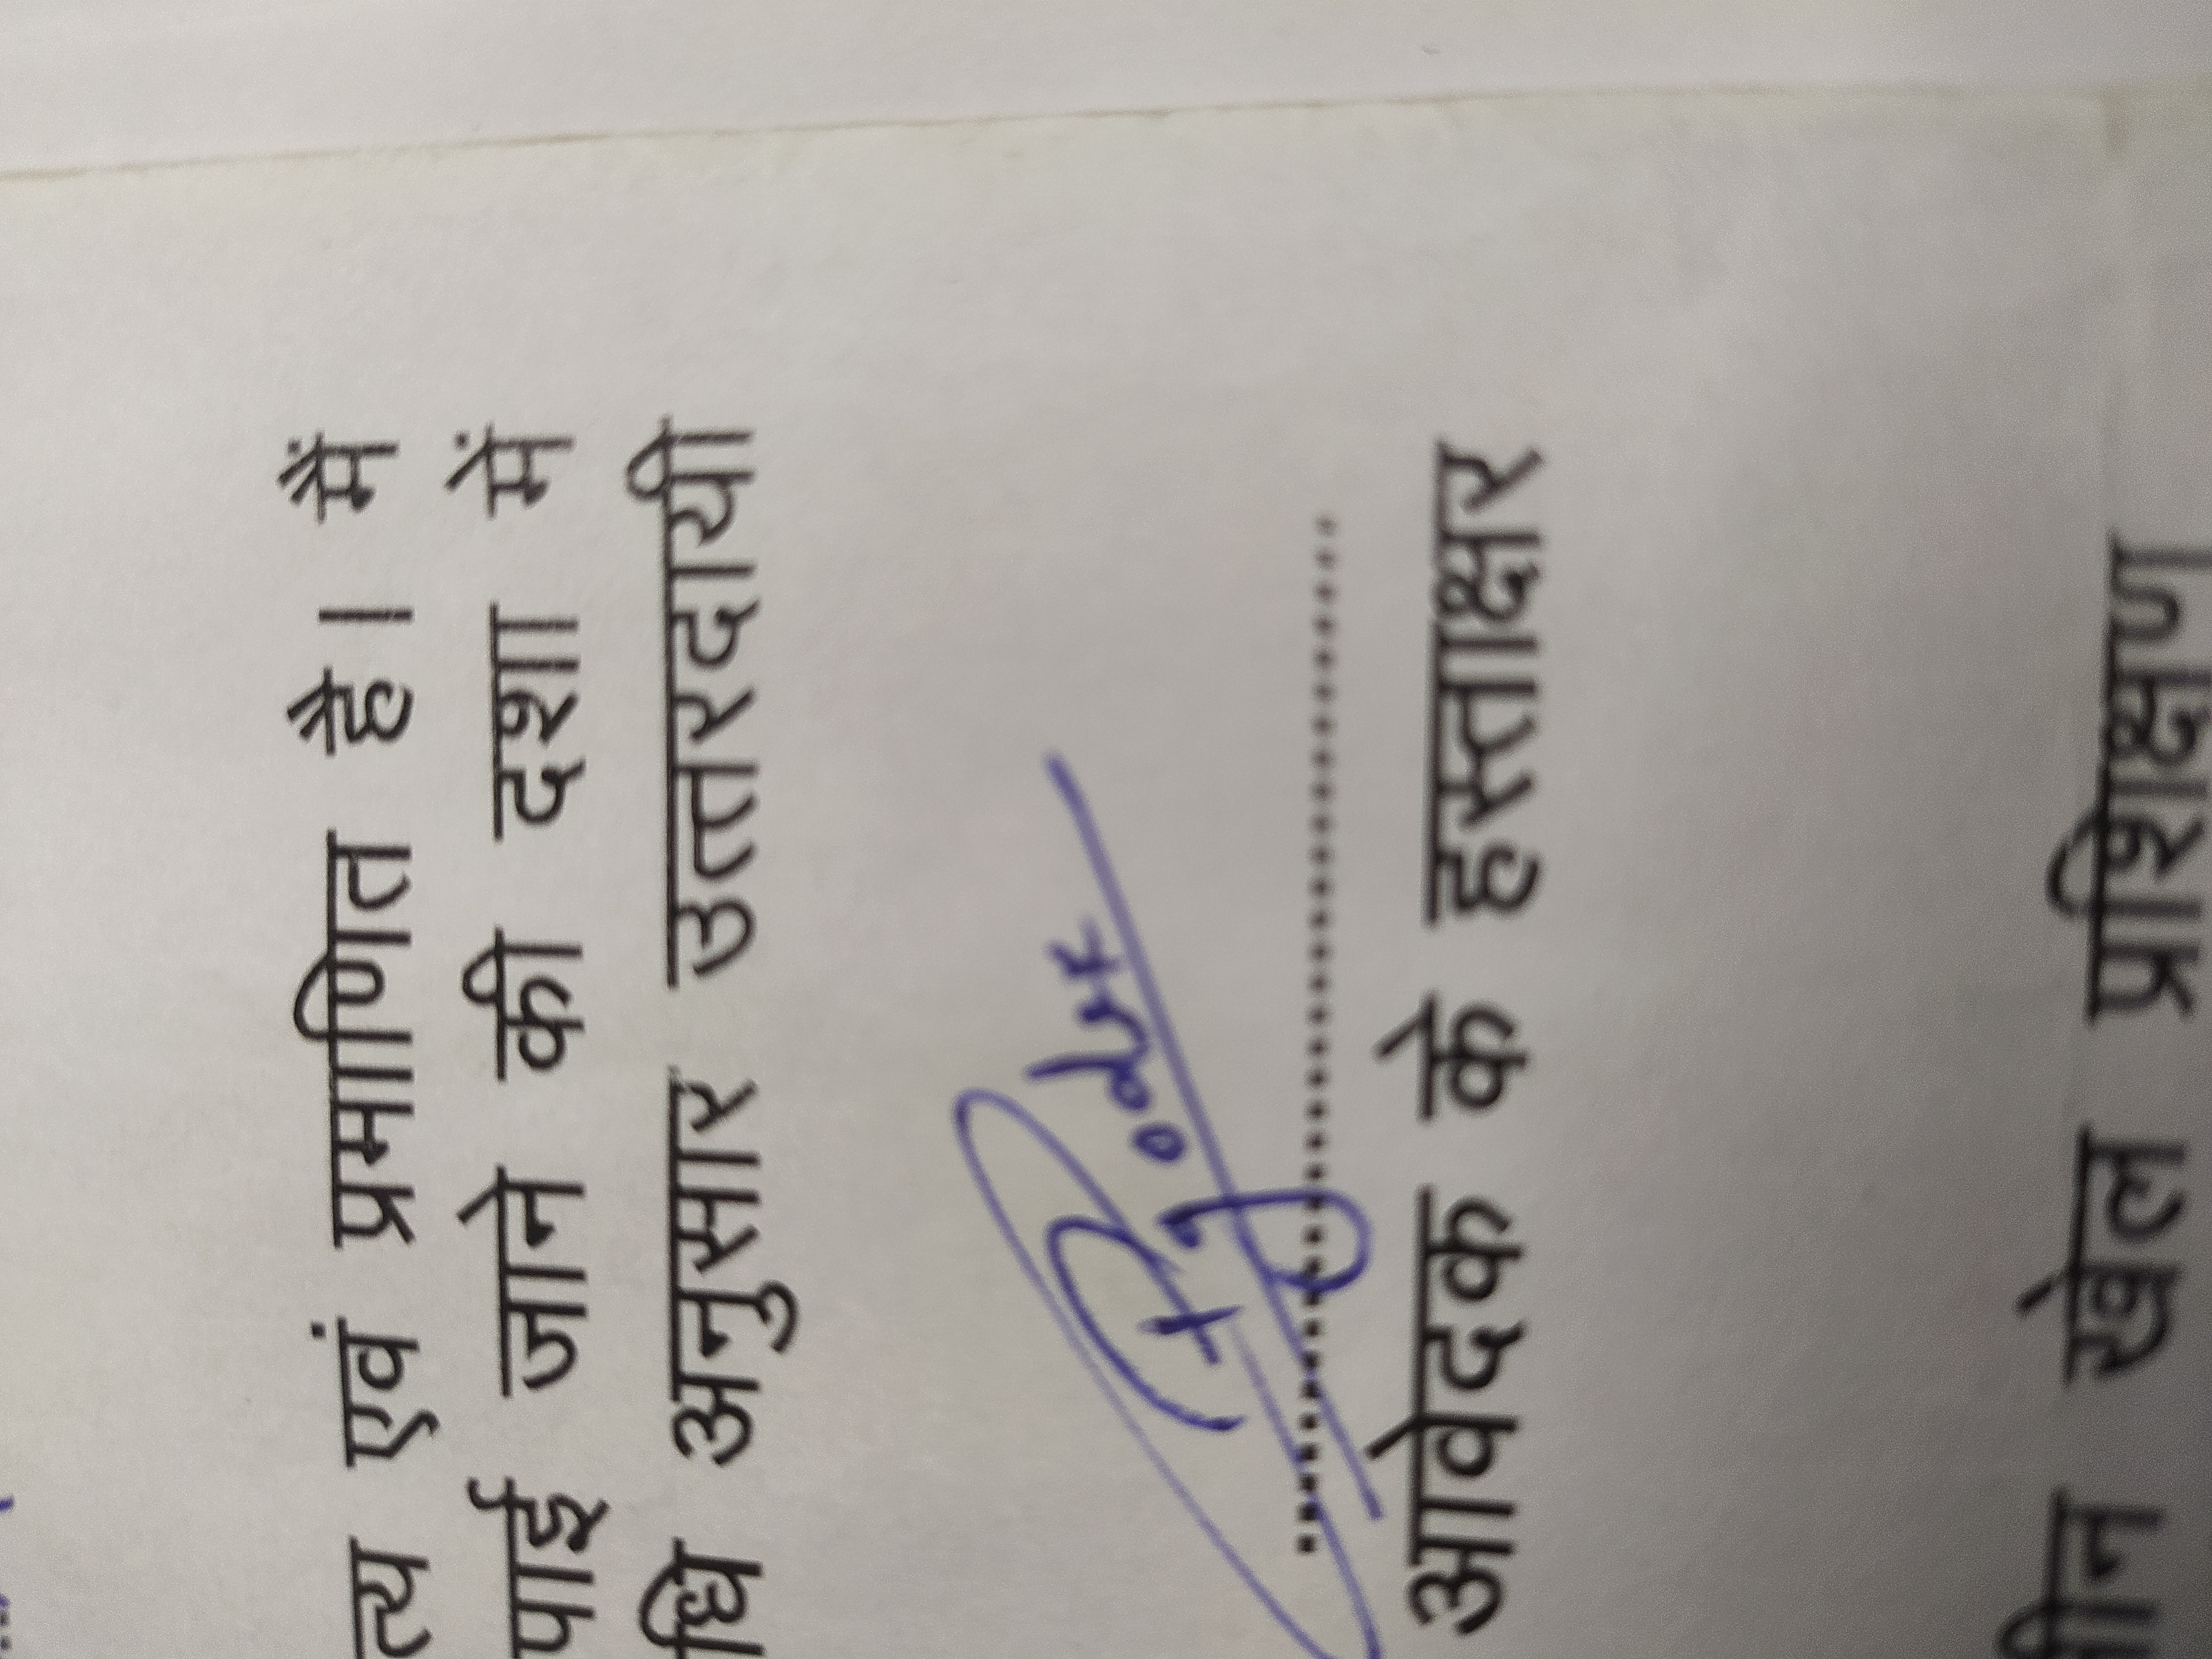 त्य एवं प्रमाणित है। मैं
पाई जाने की दशा में
धि अनुसार उत्तरदायी
आवेदक के हस्ताक्षर
खेल प्रशिक्षण